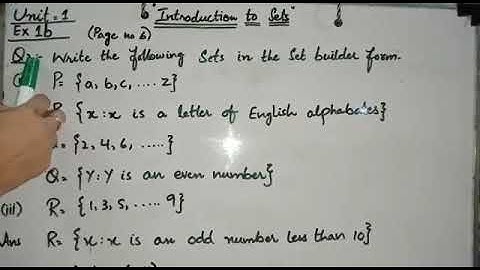 Unit:1 "Introduction to Sets"
Ex 1b (Page no 6)
Q2:- Write the following Sets in the Set builder form.
P= {a, b, c, .... z}
{x:x is a letter of English alphabates}
= {2, 4, 6, .....}
Q= {Y:Y is an even number}
(iii) R= {1, 3, 5, ..... 9}
Ans R= {x:x is an odd number less than 10}